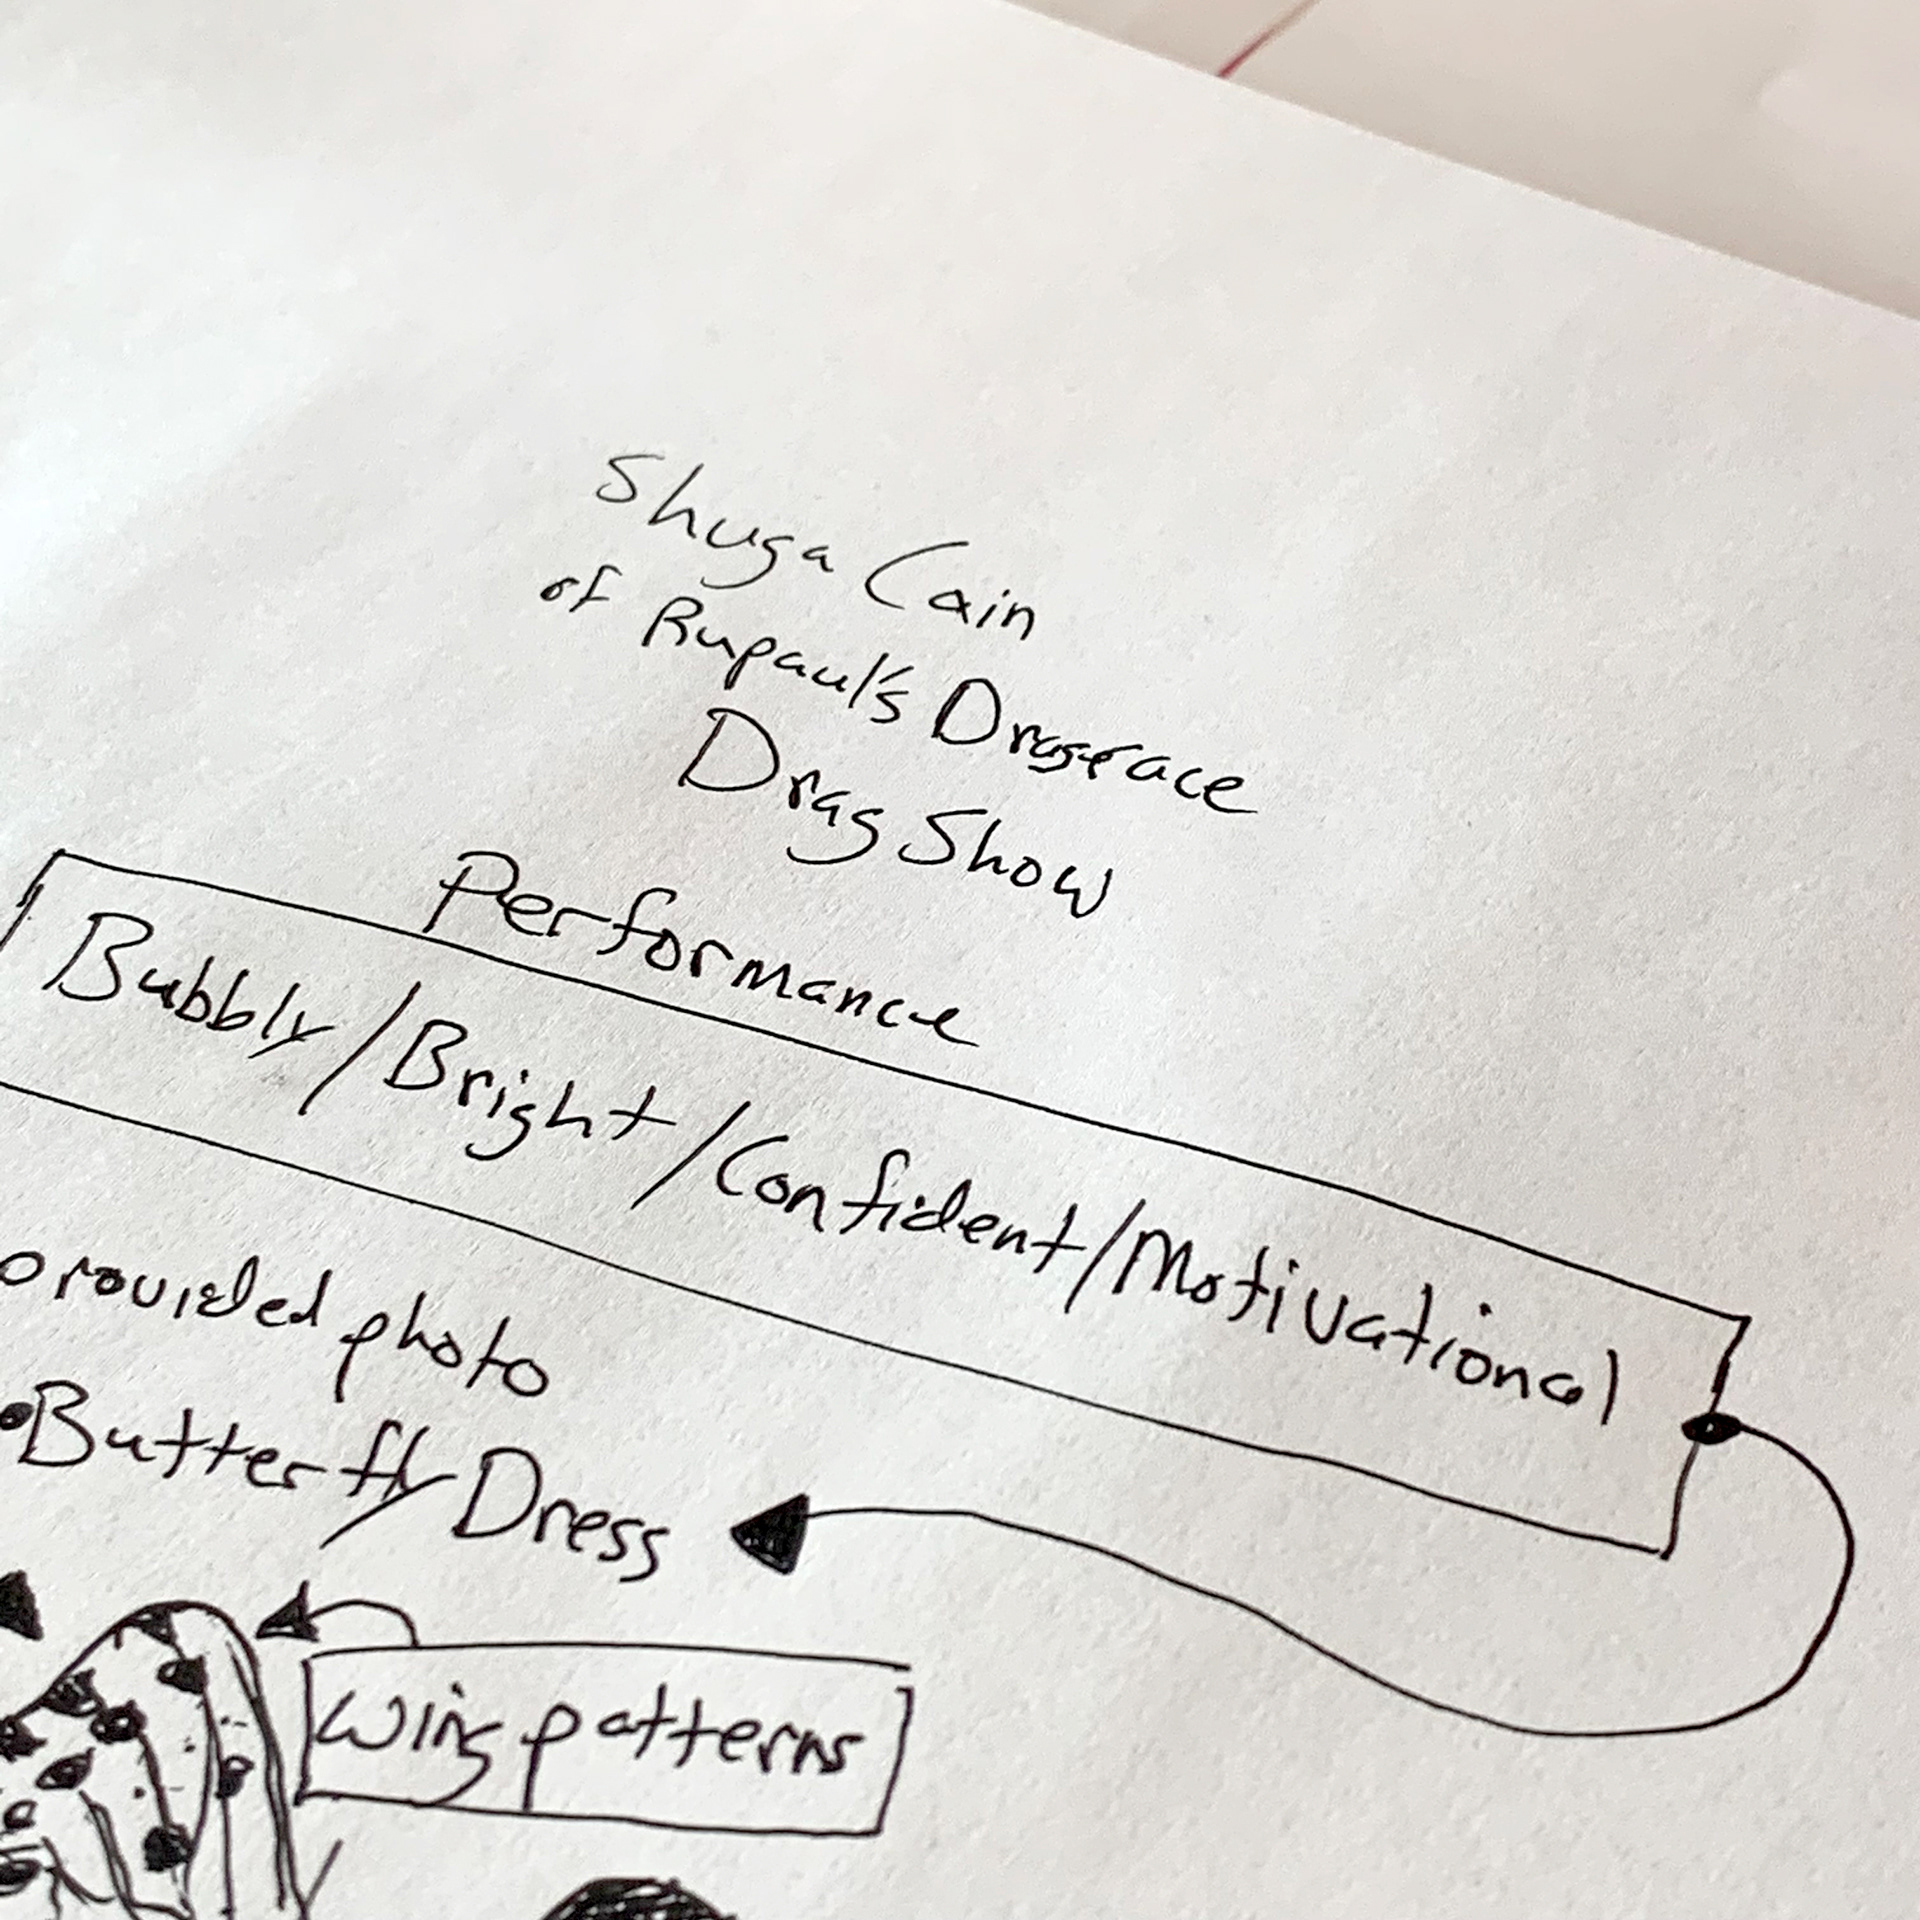 Shuga Cain
of Rupaul's Dragrace
Drag Show
Performance
Bubbly/Bright/Confident/Motivational
provided photo
•Butterfly Dress
wing patterns